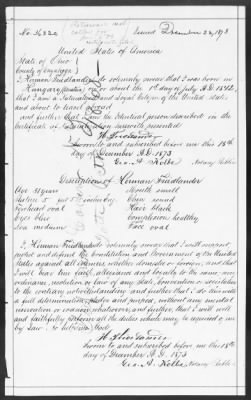 No 36320 Issued December 22, 1873
United States of America
State of Ohio
County of Cuyahoga
I Herman Friedlander do solemnly swear that I was born in
Hungary on or about the 1st of July A.D. 1842,
that I am a Naturalized and Loyal Citizen of the United States
and about to travel abroad
and further that I am the identical person described in the
certificate of Naturalization herewith presented
H. Friedlander
Sworn to and subscribed before me this 18th
day of December A.D. 1873
Geo. A. Kolbe Notary Public
Description of Herman Friedlander
Age 31 years Mouth small
Stature 5 feet Chin round
Forehead oval Hair black
Eyes blue Complexion healthy
Nose medium Face oval
I, Herman Friedlander do solemnly swear that I will support,
protect and defend the Constitution and Government of the United
States against all enemies, whether domestic or foreign, and that
I will bear true faith, allegiance and loyalty to the same, any
ordinance, resolution or law of any State, Convention or Legislature
to the contrary notwithstanding and further that I do this with
a full determination, pledge and purpose, without any mental
reservation or evasion whatsoever, and further, that I will well
and faithfully perform all the duties which may be required of me
by law. So help me God,
H. Friedlander
Sworn to and subscribed before me this 18th
day of December A.D. 1873
Geo. A. Kolbe Notary Public